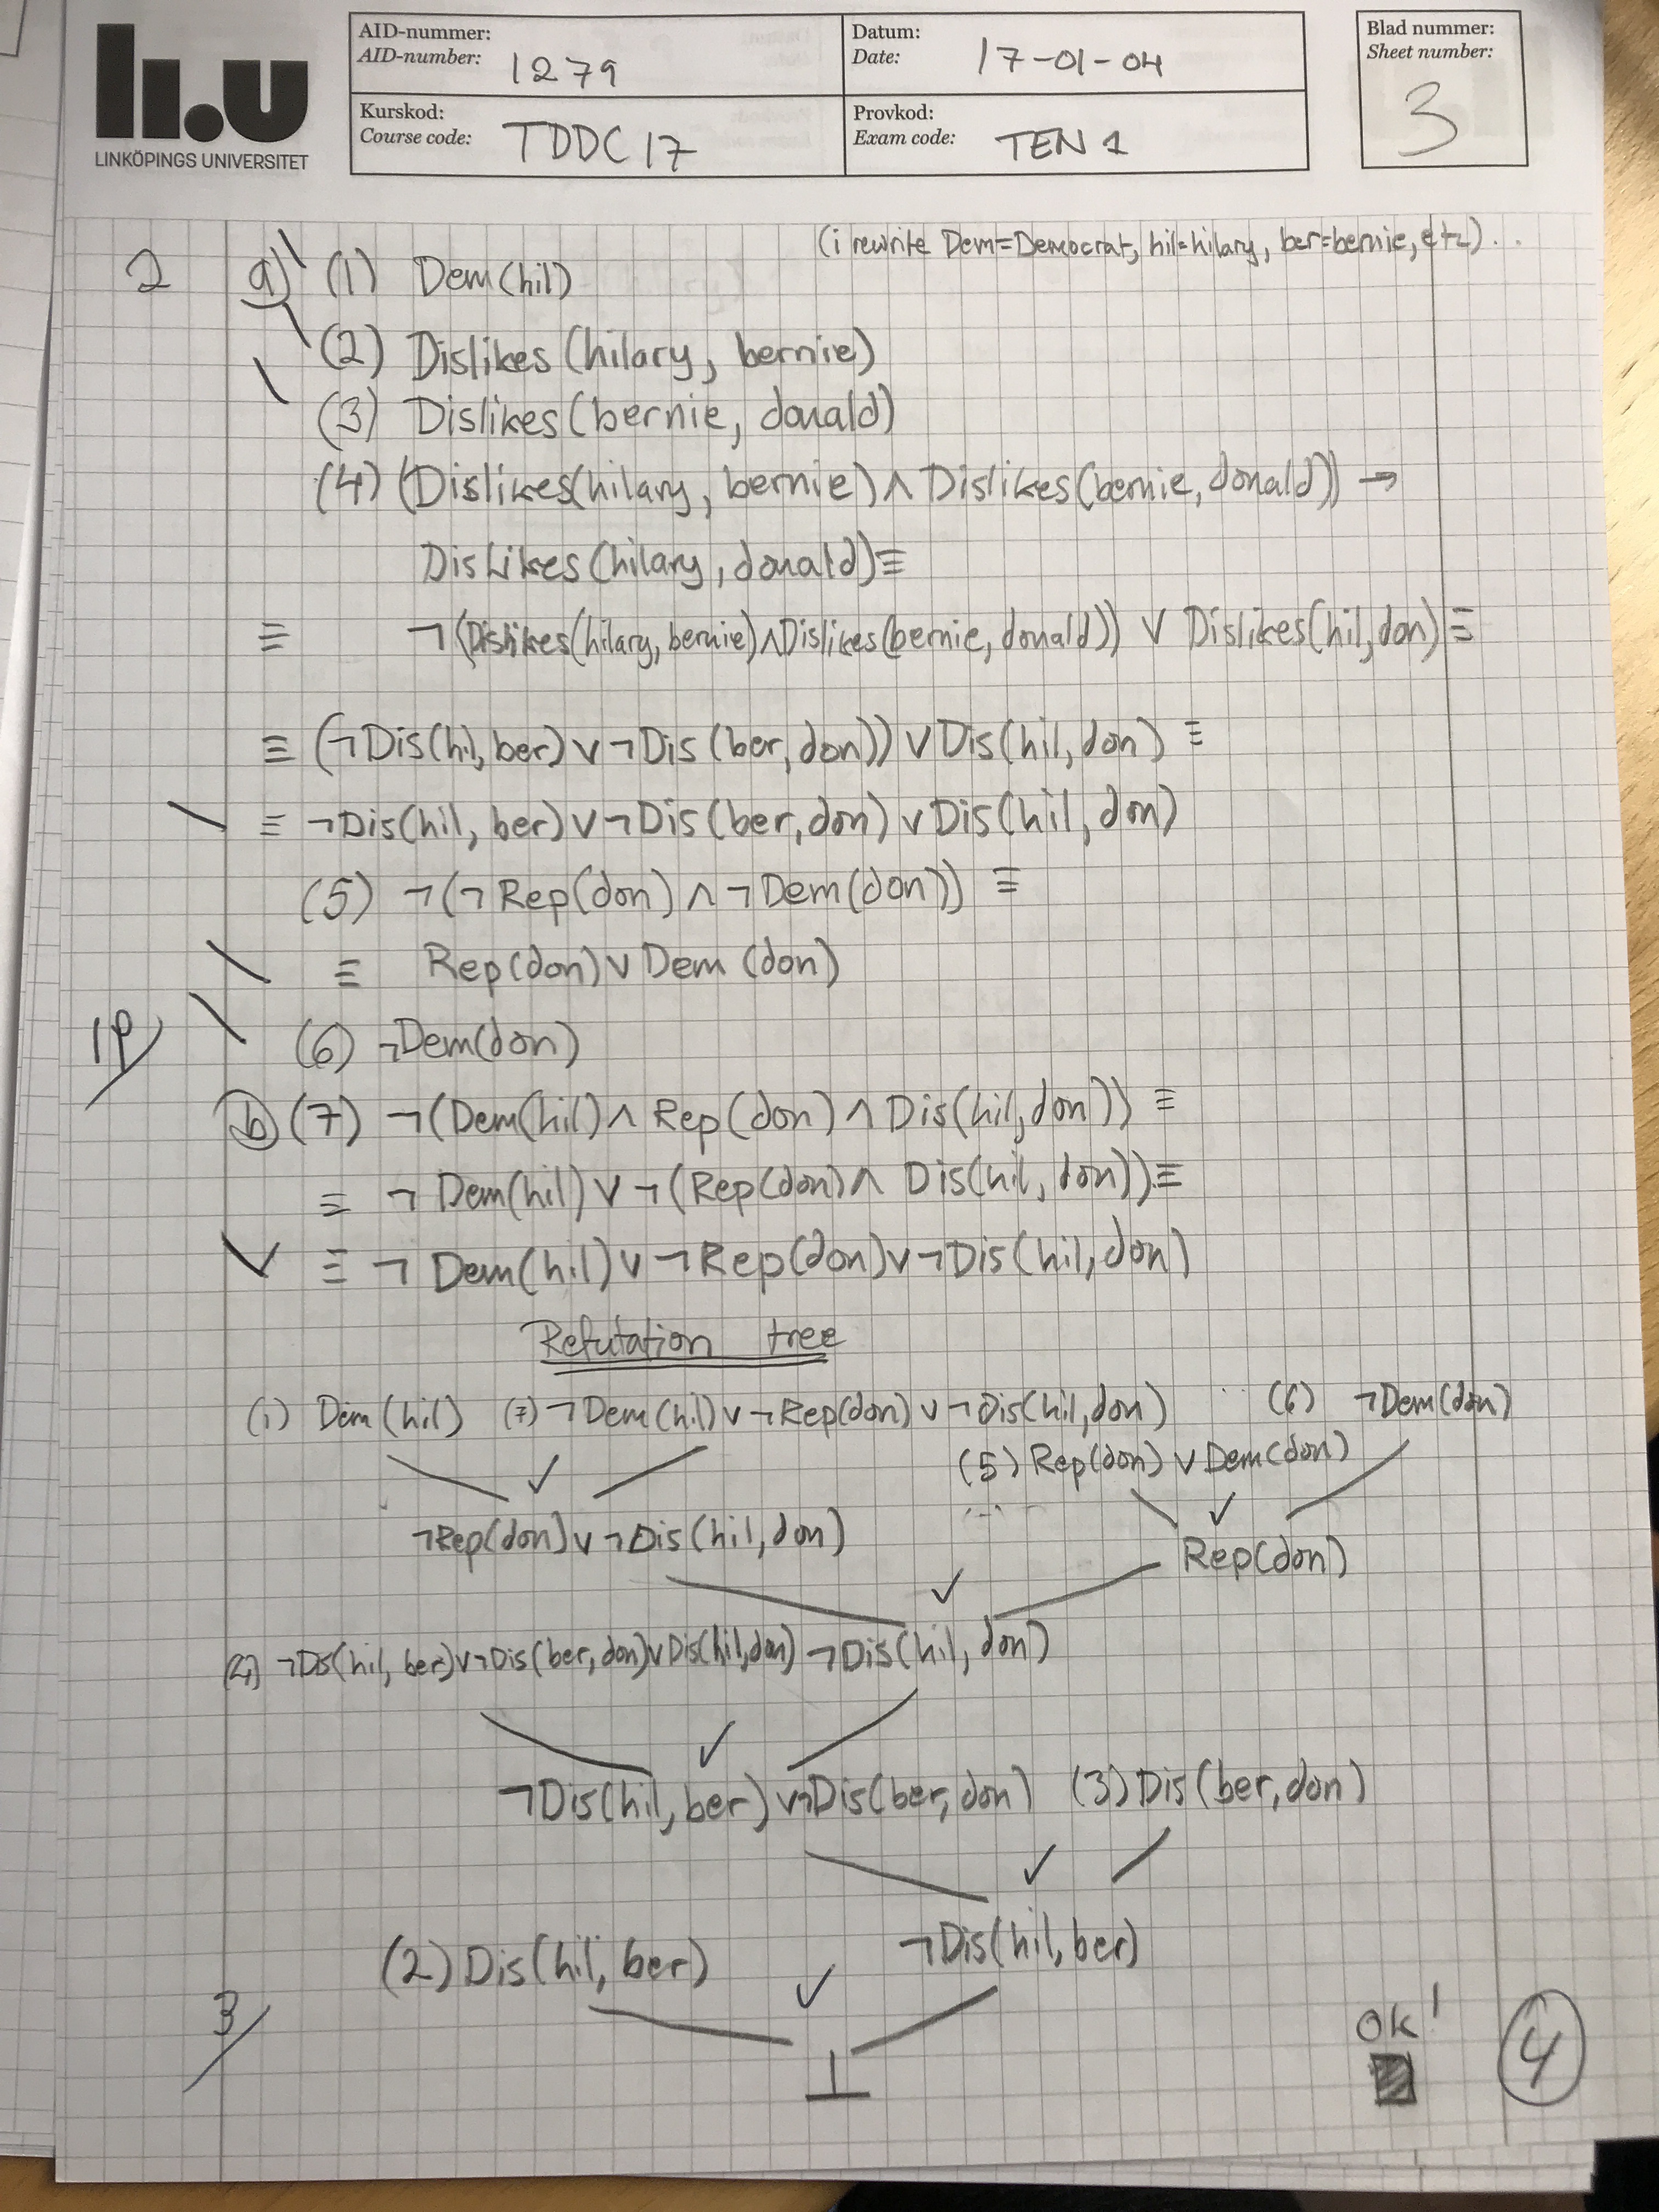 li.u
LINKÖPINGS UNIVERSITET
AID-nummer:
AID-number: 1279
Datum:
Date: 17-01-04
Blad nummer:
Sheet number:
3
Kurskod:
Course code: TDDC17
Provkod:
Exam code: TEN1
(i rewrite Dem=Democrat, hil=hilary, ber=bernie, etc)...
2 a) (1) Dem(hil)
(2) Dislikes(hilary, bernie)
(3) Dislikes(bernie, donald)
(4) (Dislikes(hilary, bernie) ∧ Dislikes(bernie, donald)) →
Dislikes(hilary, donald) ≡
≡ ¬(Dislikes(hilary, bernie) ∧ Dislikes(bernie, donald)) ∨ Dislikes(hil, don) ≡
≡ (¬Dis(hil, ber) ∨ ¬Dis(ber, don)) ∨ Dis(hil, don) ≡
≡ ¬Dis(hil, ber) ∨ ¬Dis(ber, don) ∨ Dis(hil, don)
(5) ¬(¬Rep(don) ∧ ¬Dem(don)) ≡
≡ Rep(don) ∨ Dem(don)
1p
(6) ¬Dem(don)
b) (7) ¬(Dem(hil) ∧ Rep(don) ∧ Dis(hil, don)) ≡
≡ ¬Dem(hil) ∨ ¬(Rep(don) ∧ Dis(hil, don)) ≡
≡ ¬Dem(hil) ∨ ¬Rep(don) ∨ ¬Dis(hil, don)
Refutation tree
(1) Dem(hil) (7) ¬Dem(hil) ∨ ¬Rep(don) ∨ ¬Dis(hil, don) (6) ¬Dem(don)
(5) Rep(don) ∨ Dem(don)
¬Rep(don) ∨ ¬Dis(hil, don) Rep(don)
(4) ¬Dis(hil, ber) ∨ ¬Dis(ber, don) ∨ Dis(hil, don) ¬Dis(hil, don)
¬Dis(hil, ber) ∨ ¬Dis(ber, don) (3) Dis(ber, don)
(2) Dis(hil, ber) ¬Dis(hil, ber)
3
⊥
OK!
4